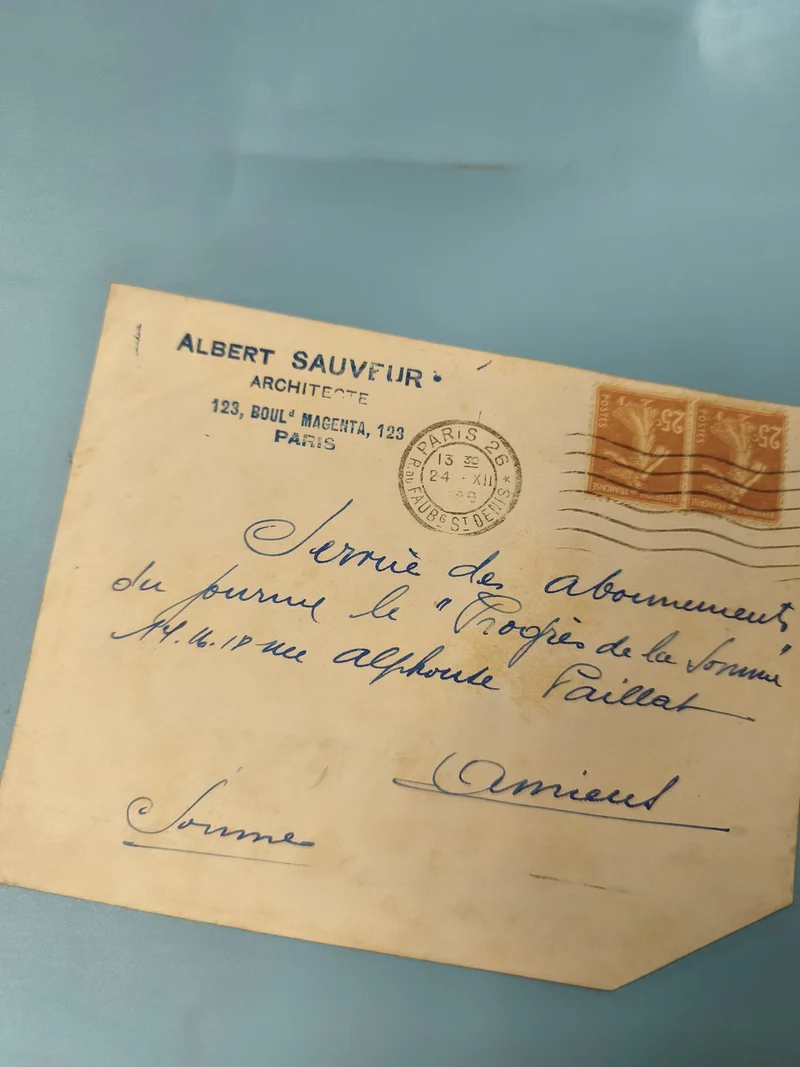 ALBERT SAUVEUR
ARCHITECTE
123, BOULᵈ MAGENTA, 123
PARIS
PARIS 26
13 30
24 - XII
R. DU FAUBG ST DENIS *
25c POSTES
25c POSTES
Service des abonnements
du journal le "Progrès de la Somme"
14.16.18 rue Alphonse Paillat
Amiens
Somme